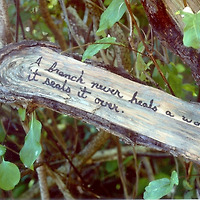 A branch never heals a wo
it seals it over.